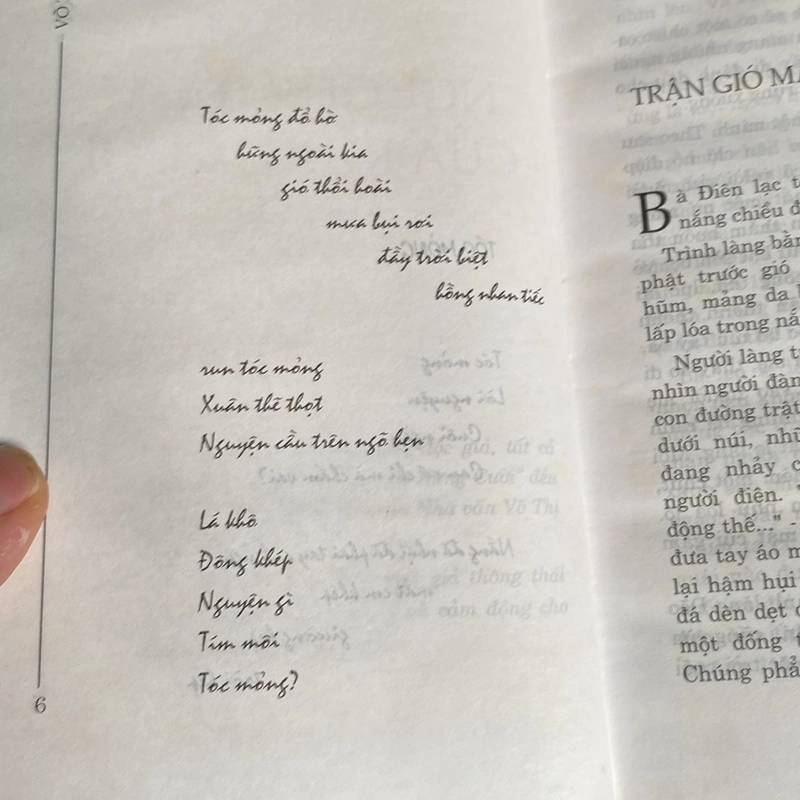 VÕ
Tóc mỏng đổ hờ
hững ngoài kia
gió thổi hoài
mưa bụi rơi
đầy trời biệt
hồng nhan tiếc
run tóc mỏng
Xuân thẽ thọt
Nguyện cầu trên ngõ hẹn
Lá khô
Đông khép
Nguyện gì
Tím môi
Tóc mỏng?
6
TRẬN GIÓ
Bà Điên lạc
nắng chiều
Trình làng bằn
phật trước gió
hũm, mảng da
lấp lóa trong nắ
Người làng
nhìn người đàn
con đường trật
dưới núi, nhữ
đang nhảy
người điên.
động thế..." -
đưa tay áo
lại hậm hụi
đá dèn dẹt
một đống
Chúng phả